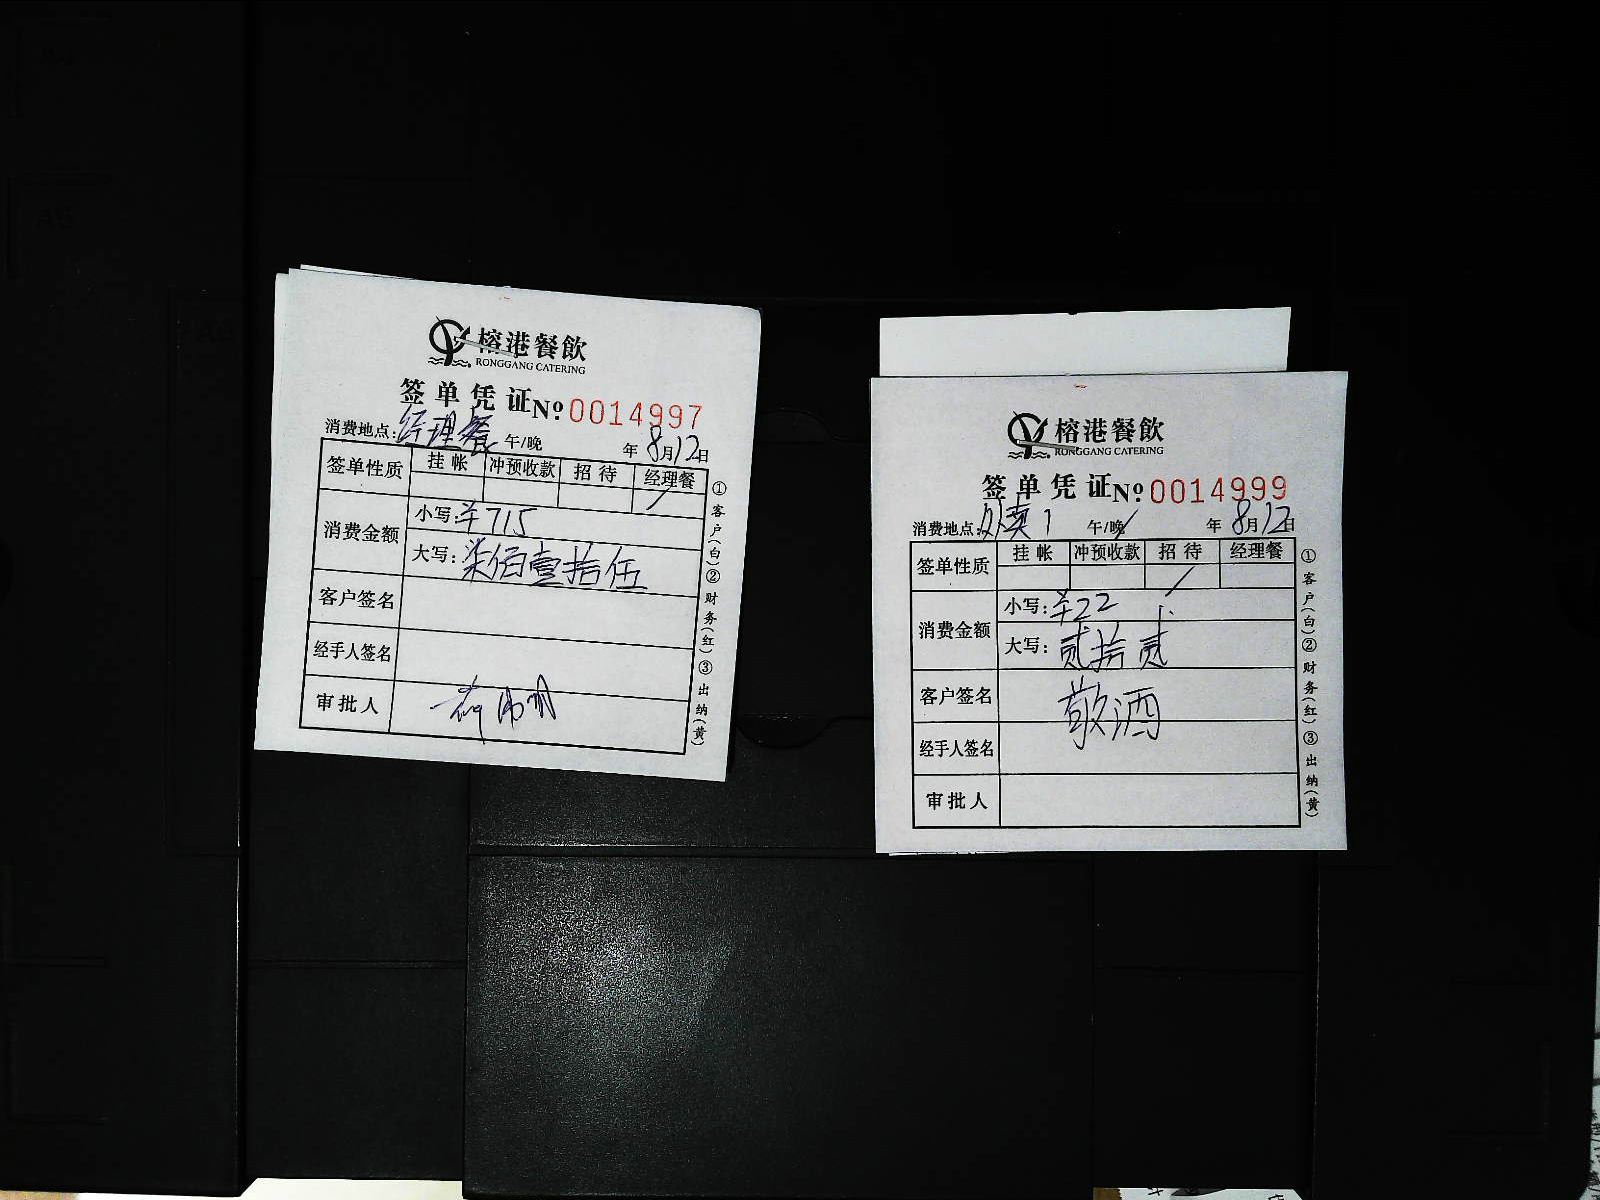 榕港餐飲
RONGGANG CATERING
签单凭证 № 0014997
消费地点: 经理餐 午/晚 年 8月12日
签单性质 挂帐 冲预收款 招待 经理餐
消费金额 小写: ¥715
大写: 柒佰壹拾伍
客户签名
经手人签名
审批人
①客户(白)②财务(红)③出纳(黄)
榕港餐飲
RONGGANG CATERING
签单凭证 № 0014999
消费地点: 外卖1 午/晚 年 8月12日
签单性质 挂帐 冲预收款 招待 经理餐
消费金额 小写: ¥22
大写: 贰拾贰
客户签名 敬酒
经手人签名
审批人
①客户(白)②财务(红)③出纳(黄)